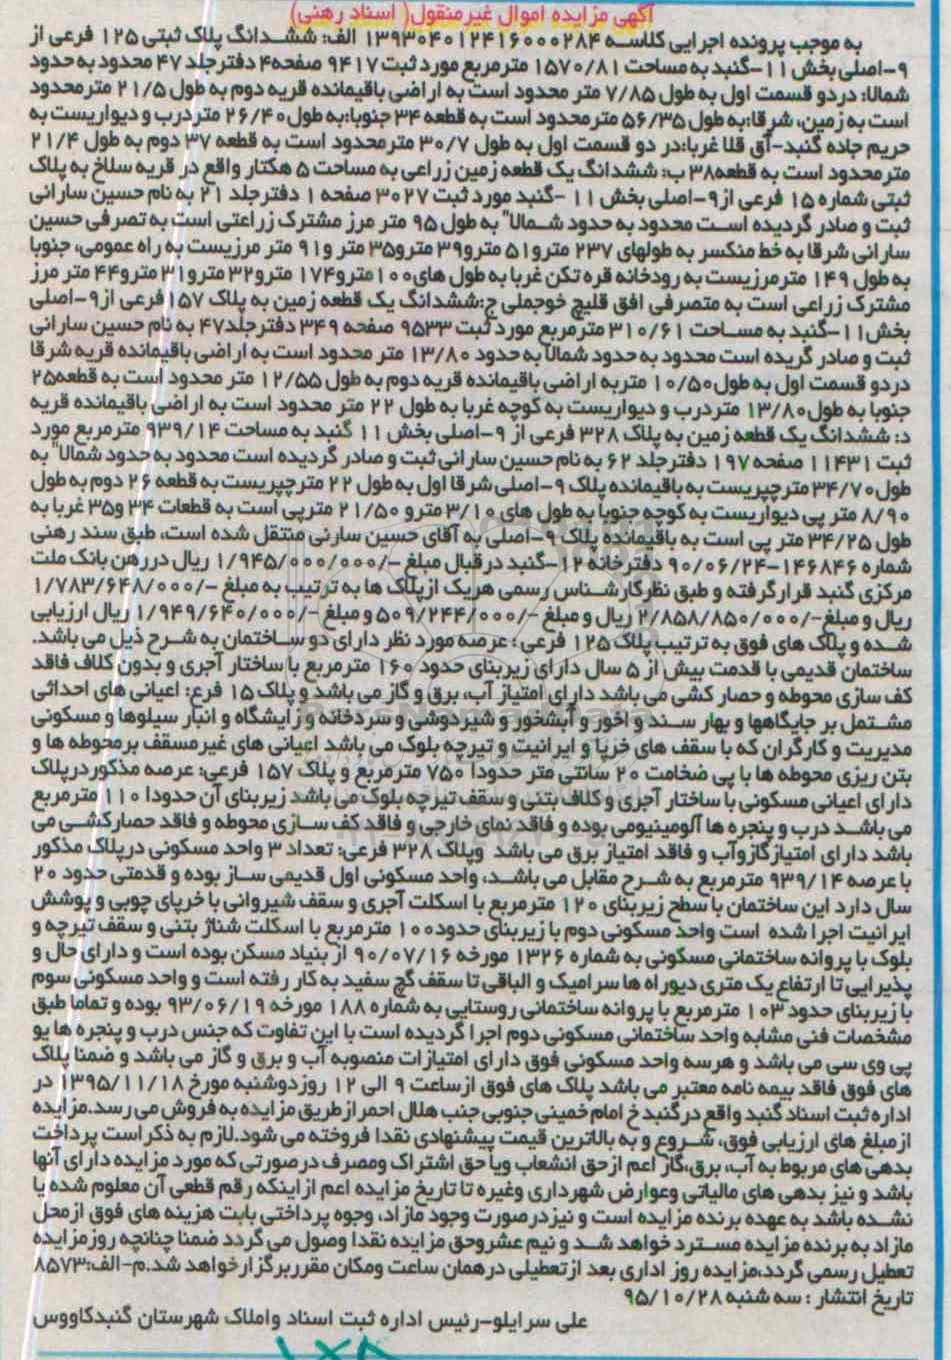 آگهی مزایده اموال غیرمنقول( اسناد رهنی)
به موجب پرونده اجرایی کلاسه ۱۳۹۳۰۴۰۱۲۴۱۶۰۰۰۲۸۴ الف: ششدانگ پلاک ثبتی ۱۲۵ فرعی از
۹-اصلی بخش ۱۱-گنبد به مساحت ۱۵۷۰/۸۱ مترمربع مورد ثبت ۹۴۱۷ صفحه۴ دفترجلد ۴۷ محدود به حدود
شمالا: دردو قسمت اول به طول ۷/۸۵ متر محدود است به اراضی باقیمانده قریه دوم به طول ۲۱/۵ مترمحدود
است به زمین، شرقا:به طول ۵۶/۳۵ مترمحدود است به قطعه ۳۴ جنوبا:به طول ۲۶/۴۰ متردرب و دیواریست به
حریم جاده گنبد-آق قلا غربا:در دو قسمت اول به طول ۳۰/۷ مترمحدود است به قطعه ۳۷ دوم به طول ۲۱/۴
مترمحدود است به قطعه۳۸ ب: ششدانگ یک قطعه زمین زراعی به مساحت ۵ هکتار واقع در قریه سلاخ به پلاک
ثبتی شماره ۱۵ فرعی از۹-اصلی بخش ۱۱ -گنبد مورد ثبت ۳۰۲۷ صفحه ۱ دفترجلد ۲۱ به نام حسین سارانی
ثبت و صادر گردیده است محدود به حدود شمالا" به طول ۹۵ متر مرز مشترک زراعتی است به تصرفی حسین
سارانی شرقا به خط منکسر به طولهای ۲۳۷ مترو۵۱ مترو۳۹ مترو۳۵ متر و۹۱ متر مرزیست به راه عمومی، جنوبا
به طول ۱۴۹ مترمرزیست به رودخانه قره تکن غربا به طول های۱۰۰مترو۱۷۴ مترو۳۲ مترو۳۱ مترو۴۴ متر مرز
مشترک زراعی است به متصرفی افق قلیچ خوجملی ج:ششدانگ یک قطعه زمین به پلاک ۱۵۷فرعی از۹-اصلی
بخش۱۱-گنبد به مساحت ۳۱۰/۶۱ مترمربع مورد ثبت ۹۵۳۳ صفحه ۳۴۹ دفترجلد۴۷ به نام حسین سارانی
ثبت و صادر گریده است محدود به حدود شمالا به حدود ۱۳/۸۰ متر محدود است به اراضی باقیمانده قریه شرقا
دردو قسمت اول به طول۱۰/۵۰ متربه اراضی باقیمانده قریه دوم به طول ۱۲/۵۵ متر محدود است به قطعه۲۵
جنوبا به طول۱۳/۸۰ متردرب و دیواریست به کوچه غربا به طول ۲۲ متر محدود است به اراضی باقیمانده قریه
د: ششدانگ یک قطعه زمین به پلاک ۳۲۸ فرعی از ۹-اصلی بخش ۱۱ گنبد به مساحت ۹۳۹/۱۴ مترمربع مورد
ثبت ۱۱۴۳۱ صفحه ۱۹۷ دفترجلد ۶۲ به نام حسین سارانی ثبت و صادر گردیده است محدود به حدود شمالا" به
طول۳۴/۷۰ مترچپریست به باقیمانده پلاک ۹-اصلی شرقا اول به طول ۲۲ مترچپریست به قطعه ۲۶ دوم به طول
۸/۹۰ متر پی دیواریست به کوچه جنوبا به طول های ۳/۱۰ مترو ۲۱/۵۰ مترپی است به قطعات ۳۴ و۳۵ غربا به
طول ۳۴/۲۵ متر پی است به باقیمانده پلاک ۹-اصلی به آقای حسین سارئی منتقل شده است، طبق سند رهنی
شماره ۱۴۶۸۴۶-۹۰/۰۶/۲۴ دفترخانه ۱۲-گنبد در قبال مبلغ -/۱/۹۴۵/۰۰۰/۰۰۰ ریال در رهن بانک ملت
مرکزی گنبد قرار گرفته و طبق نظرکارشناس رسمی هریک از پلاک ها به ترتیب به مبلغ -/۱/۷۸۳/۶۴۸/۰۰۰
ریال و مبلغ-/۲/۸۵۸/۸۵۰/۰۰۰ ریال و مبلغ -/۵۰۹/۲۴۴/۰۰۰ و مبلغ -/۱/۹۴۹/۶۴۰/۰۰۰ ریال ارزیابی
شده و پلاک های فوق به ترتیب پلاک ۱۲۵ فرعی : عرصه مورد نظر دارای دو ساختمان به شرح ذیل می باشد.
ساختمان قدیمی با قدمت بیش از ۵ سال دارای زیربنای حدود ۱۶۰ مترمربع با ساختار آجری و بدون کلاف فاقد
کف سازی محوطه و حصار کشی می باشد دارای امتیاز آب، برق و گاز می باشد و پلاک ۱۵ فرع: اعیانی های احداثی
مشتمل بر جایگاهها و بهار سند و اخور و آبشخور و شیردوشی و سردخانه و زایشگاه و انبار سیلوها و مسکونی
مدیریت و کارگران که با سقف های خرپا و ایرانیت و تیرچه بلوک می باشد اعیانی های غیرمسقف برمحوطه ها و
بتن ریزی محوطه ها با پی ضخامت ۲۰ سانتی متر حدودا ۷۵۰ مترمربع و پلاک ۱۵۷ فرعی: عرصه مذکور درپلاک
دارای اعیانی مسکونی با ساختار آجری و کلاف بتنی و سقف تیرچه بلوک می باشد زیربنای آن حدودا ۱۱۰ مترمربع
می باشد درب و پنجره ها آلومینیومی بوده و فاقد نمای خارجی و فاقد کف سازی محوطه و فاقد حصارکشی می
باشد دارای امتیازگازوآب و فاقد امتیاز برق می باشد وپلاک ۳۲۸ فرعی: تعداد ۳ واحد مسکونی درپلاک مذکور
با عرصه ۹۳۹/۱۴ مترمربع به شرح مقابل می باشد، واحد مسکونی اول قدیمی ساز بوده و قدمتی حدود ۲۰
سال دارد این ساختمان با سطح زیربنای ۱۲۰ مترمربع با اسکلت آجری و سقف شیروانی با خرپای چوبی و پوشش
ایرانیت اجرا شده است واحد مسکونی دوم با زیربنای حدود۱۰۰ مترمربع با اسکلت شناژ بتنی و سقف تیرچه و
بلوک با پروانه ساختمانی مسکونی به شماره ۱۳۲۶ مورخه ۹۰/۰۷/۱۶ از بنیاد مسکن بوده است و دارای حال و
پذیرایی تا ارتفاع یک متری دیوراه ها سرامیک و الباقی تا سقف گچ سفید به کار رفته است و واحد مسکونی سوم
با زیربنای حدود ۱۰۳ مترمربع با پروانه ساختمانی روستایی به شماره ۱۸۸ مورخه ۹۳/۰۶/۱۹ بوده و تماما طبق
مشخصات فنی مشابه واحد ساختمانی مسکونی دوم اجرا گردیده است با این تفاوت که جنس درب و پنجره ها یو
پی وی سی می باشد و هرسه واحد مسکونی فوق دارای امتیازات منصوبه آب و برق و گاز می باشد و ضمنا پلاک
های فوق فاقد بیمه نامه معتبر می باشد پلاک های فوق ازساعت ۹ الی ۱۲ روزدوشنبه مورخ ۱۳۹۵/۱۱/۱۸ در
اداره ثبت اسناد گنبد واقع در گنبد خ امام خمینی جنوبی جنب هلال احمر از طریق مزایده به فروش می رسد.مزایده
ازمبلغ های ارزیابی فوق، شروع و به بالاترین قیمت پیشنهادی نقدا فروخته می شود.لازم به ذکر است پرداخت
بدهی های مربوط به آب، برق،گاز اعم ازحق انشعاب ویا حق اشتراک ومصرف درصورتی که مورد مزایده دارای آنها
باشد و نیز بدهی های مالیاتی وعوارض شهرداری وغیره تا تاریخ مزایده اعم ازاینکه رقم قطعی آن معلوم شده یا
نشده باشد به عهده برنده مزایده است و نیزدرصورت وجود مازاد، وجوه پرداختی بابت هزینه های فوق ازمحل
مازاد به برنده مزایده مسترد خواهد شد و نیم عشروحق مزایده نقدا وصول می گردد ضمنا چنانچه روزمزایده
تعطیل رسمی گردد،مزایده روز اداری بعد ازتعطیلی درهمان ساعت ومکان مقرربرگزارخواهد شد.م-الف:۸۵۷۳
تاریخ انتشار : سه شنبه ۹۵/۱۰/۲۸
علی سرایلو-رئیس اداره ثبت اسناد واملاک شهرستان گنبدکاووس